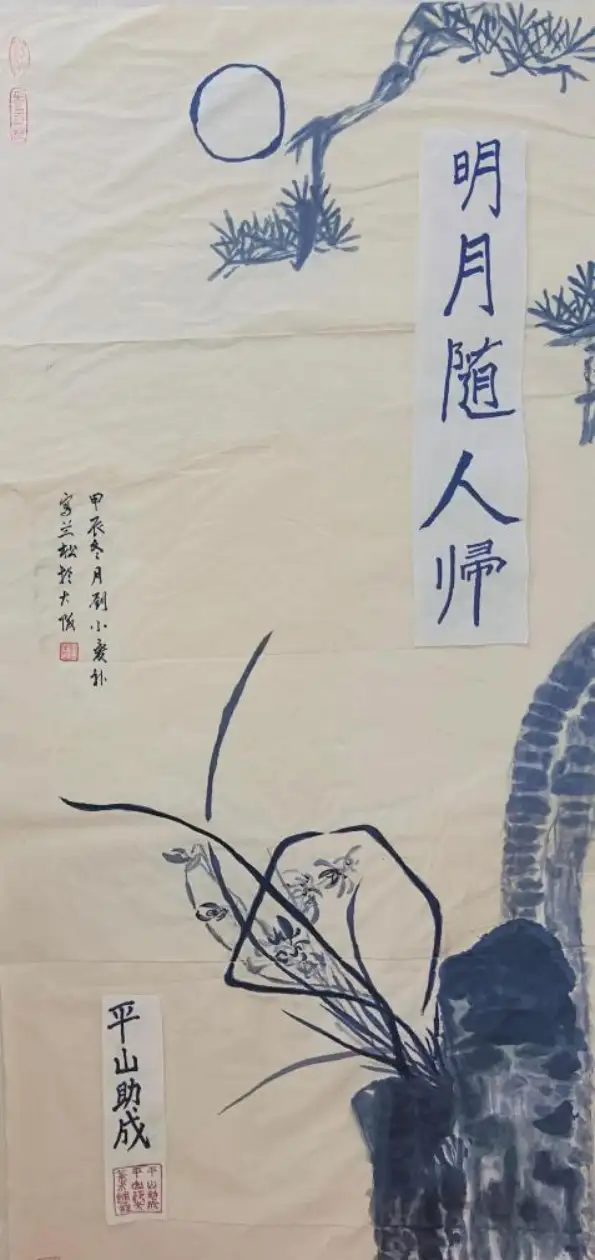 明月随人帰
甲辰冬月刘小爱补
写兰松於大阪
平山助成